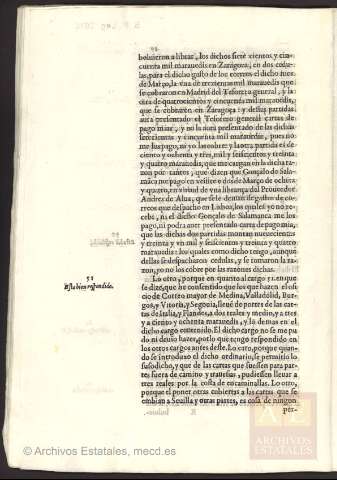 boluieron a librar, los dichos siete cientos y cin-
cuenta mil marauedis en Zaragoça, en dos cedu-
las, para el dicho gasto de los correos el dicho mes
de Março, la vna de trecientas mil marauedis que
se cobraron en Madrid del Tesorero general, y la
otra de quatrocientos y cincuenta mil marauedis,
que se cobraron en Zaragoça: y destas partidas
aurà presentado el Tesorero general cartas de
pago mias, y no lo aurà presentado de las dichas
setecientas y cincuenta mil marauedis, pues no
me las pagò, ni yo las cobre: y la otra partida es de
ciento y ochenta y tres mil y seiscientos y treinta
y quatro marauedis, que me cargan en la dicha ra-
zon por tantos, que dizen que Gonçalo de Sala-
manca me pagò en veinte e dos de Março de ochenta
y quatro, en virtud de vna librança del Proueedor
Andres de Alua, que se le deuian de gastos de co-
rreos que despacho en Lisboa, los quales yo no re-
cebi, ni el dicho Gonçalo de Salamanca me los
pagò, ni podrà auer presentado carta de pago mia,
que las dichas dos partidas montan nouecientas
y treinta y tres mil y seiscientos y treinta y quatro
marauedis: los quales como dicho tengo, aunque
dellas se despacharon cedulas, y se tomaron la ra-
zon, yo no los cobre por las razones dichas.
51
Esta bien respondido.
Lo otro, porque en quanto al cargo 51. en que
se dize, que he consentido que los que hazen el ofi-
cio de Correo mayor de Medina, Valladolid, Bur-
gos, y Vitoria, y Segouia, lleue de portes de las car-
tas de Italia, y Flandes, a dos reales y medio, y a tres
y a ciento y ochenta marauedis, y lo demas en el
dicho cargo contenido. El dicho cargo no se me pu-
do ni deuio hazer, por lo que tengo respondido en
los otros cargos antes deste. Lo otro, porque quan-
do se introduxo el dicho ordinario, se permitio lo
susodicho, y que de las cartas que fuessen para par-
tes fuera de camino y trauesias, pudiessen lleuar a
tres reales por la costa de encaminallas. Lo otro,
porque el poner otras cubiertas a las cartas que se
embian a Seuilla y otras partes, es cosa de ningun
per-
© Archivos Estatales, mecd.es
AE
ARCHIVOS
ESTATALES